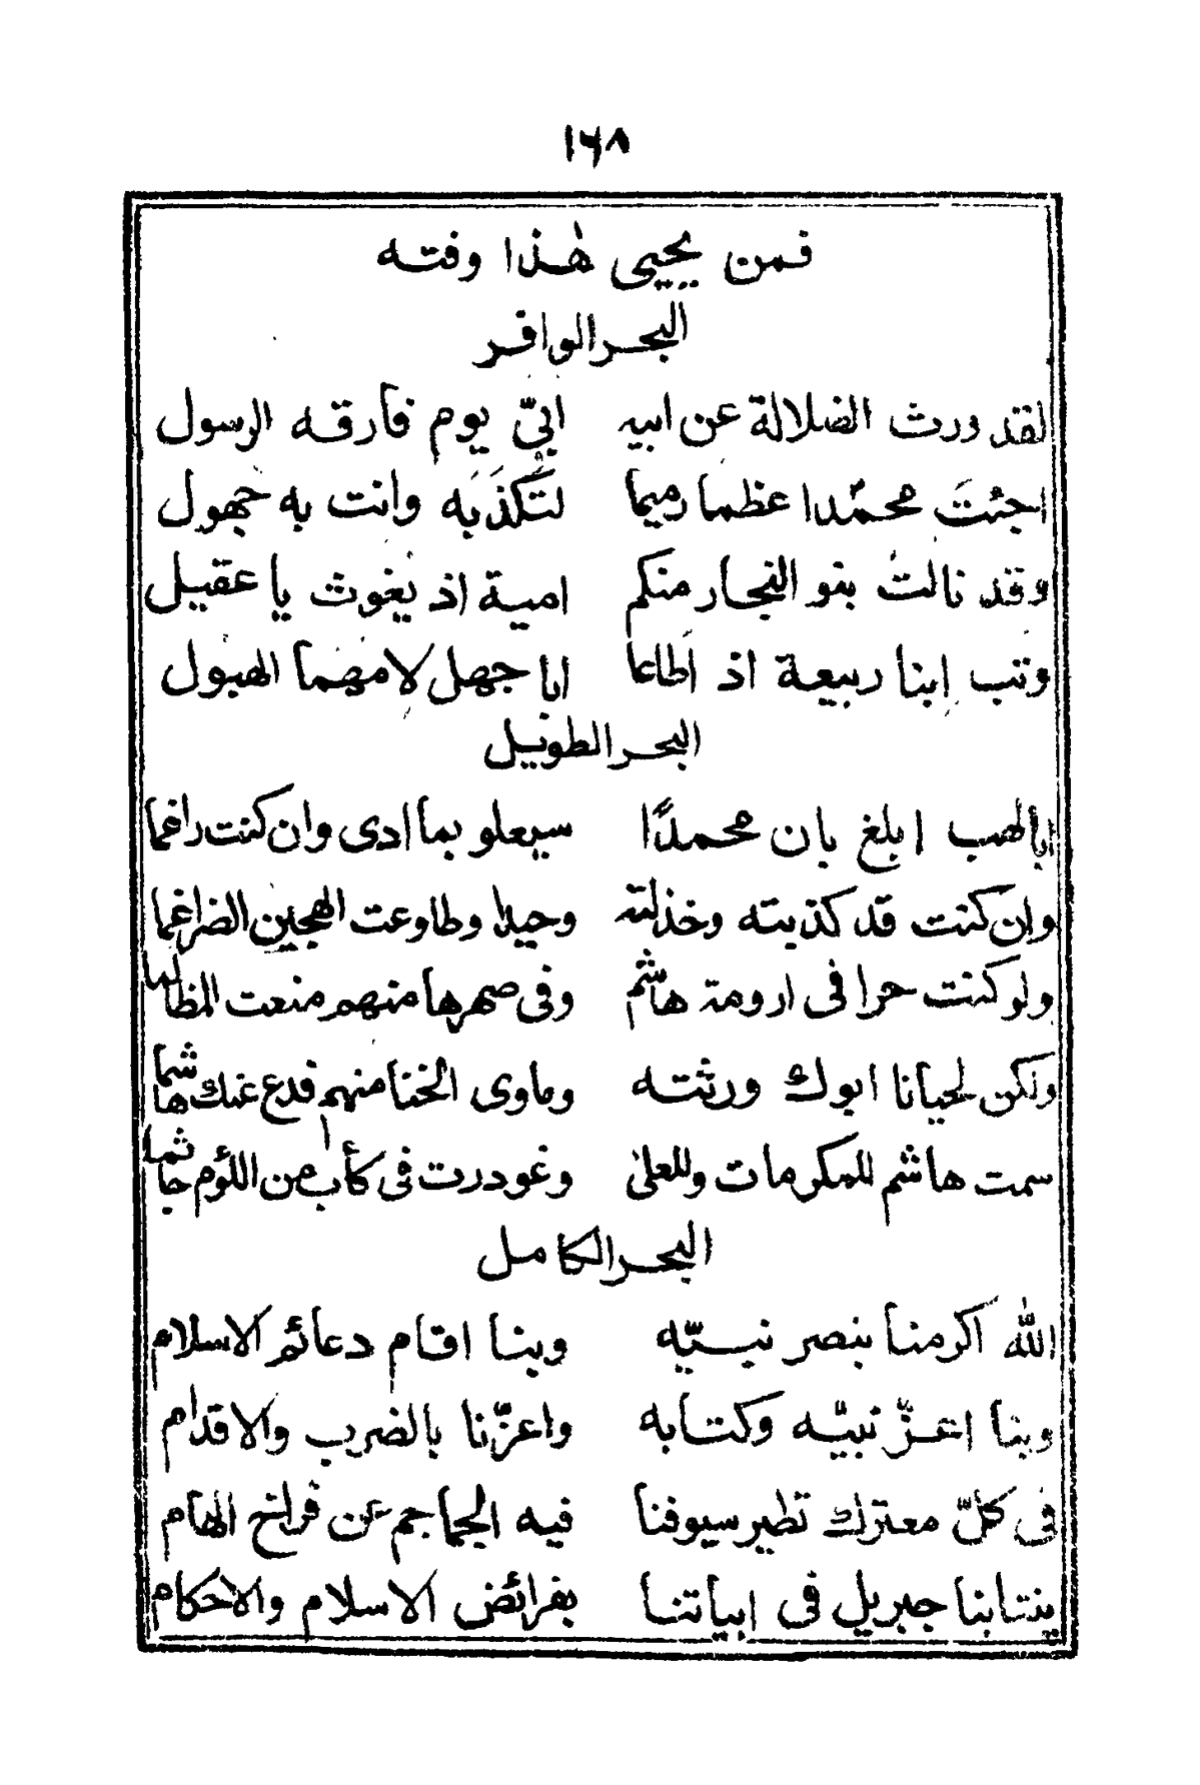 ١٦٨
فمن يحيى هٰذا وفته
البحر الوافر
لقد ورث الضلالة عن ابيه ابيّ يوم فارقه الرسول
اجئتَ محمّدا عظما رميما لتكذبَه وانت به جهول
وقد نالت بنو النجار منكم امية اذ يغوث يا عقيل
وتب ابنا ربيعة اذ أطاعا ابا جهل لامهما الهبول
البحر الطويل
ابالهب ابلغ بان محمدًا سيعلو بما ادى وان كنت راغما
وان كنت قد كذبته وخذلته وحيدا وطاوعت الهجين الضراغما
ولو كنت حرا فى ارومة هاشم وفى صهرها منهم منعت المظالما
ولكن لحيانا ابوك ورثته وماوى الخنا منهم فدع عنك هاشما
سمت هاشم للمكرمات وللعلىٰ وغودرت فى كأب من اللؤم جاثما
البحر الكامل
الله اكرمنا بنصر نبيّه وبنا اقام دعائم الاسلام
وبنا اعزّ نبيّه وكتابه واعزّنا بالضرب والاقدام
فى كلّ معترك تطير سيوفنا فيه الجماجم عن فراخ الهام
ينتابنا جبريل فى ابياتنا بفرائض الاسلام والاحكام